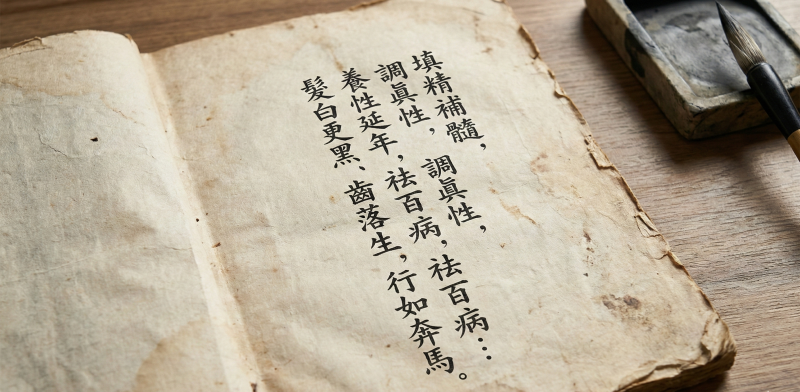 填精補髓，
調眞性，調眞性，
養性延年，祛百病，祛百病…
髮白更黑、齒落生，行如奔馬。